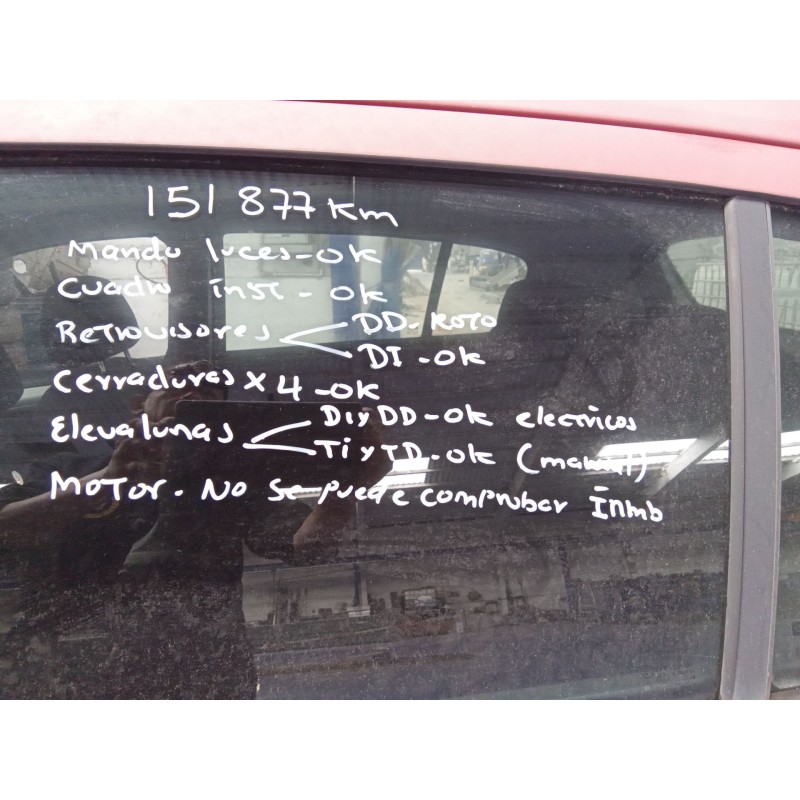 151 877 Km
Mando luces-OK
Cuadro inst - OK
Retrovisores DD-ROTO
DI-OK
Cerraduras x 4 -OK
Elevalunas DI y DD-OK electricos
TI y TD-OK (manual)
MOTOR. NO Se puede comprobar Inmb